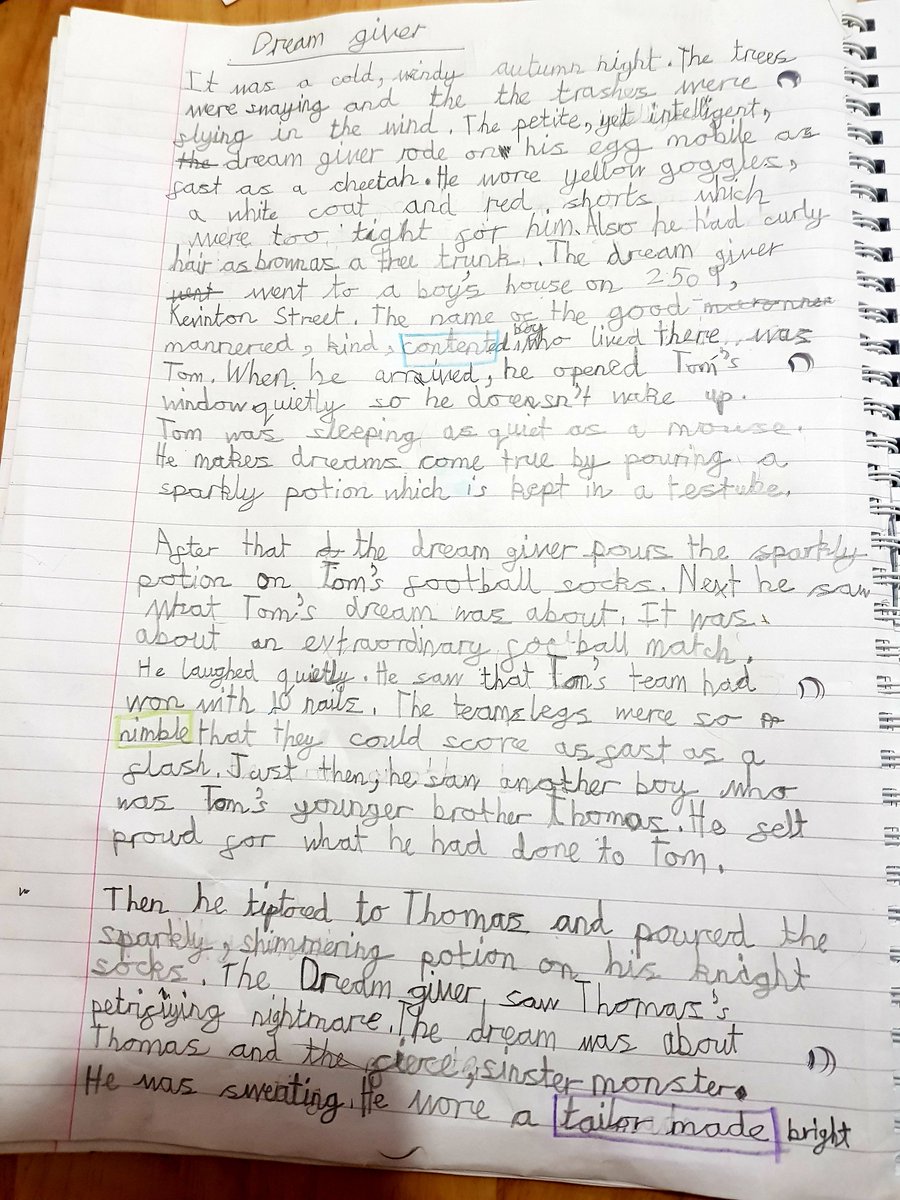 Dream giver
It was a cold, windy autumn night. The trees
were swaying and the the trashes were
flying in the wind. The petite, yet intelligent,
the dream giver rode on his egg mobile as
fast as a cheetah. He wore yellow goggles,
a white coat and red shorts which
were too tight for him. Also he had curly
hair as brown as a tree trunk. The dream giver
went went to a boy's house on 250
Kevinton Street. The name of the good
mannered, kind, contented boy who lived there was
Tom. When he arraived, he opened Tom's
window quietly so he doesn't wake up.
Tom was sleeping as quiet as a mouse.
He makes dreams come true by pouring a
sparkly potion which is kept in a testube.
After that the dream giver pours the sparkly
potion on Tom's football socks. Next he saw
what Tom's dream was about. It was
about an extraordinary football match.
He laughed quietly. He saw that Tom's team had
won with 10 nails. The teams legs were so
nimble that they could score as fast as a
flash. Just then, he saw another boy who
was Tom's younger brother Thomas. He felt
proud for what he had done to Tom.
Then he tiptoed to Thomas and poured the
sparkly, shimmering potion on his knight
socks. The Dream giver saw Thomas's
petrifiying nightmare. The dream was about
Thomas and the fierce, sinster monster.
He was sweating. He wore a tailor made bright